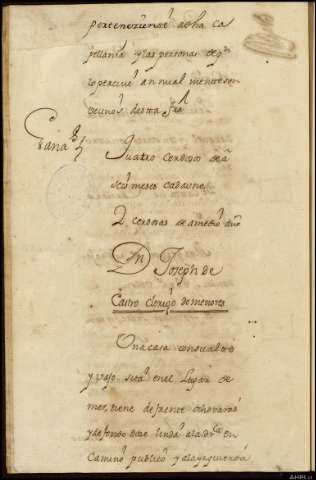 perteneziente adha Ca
pellania y las personas de qn
lo percive anualmente son
vezinos de dha
Quatro Cerdos de a
seis meses cada uno
2 cerdosas de a medio año
Dn Joseph de
Castro clerigo de menores
Una casa con su alto
y vajo sita en el Lugar de
mes, tiene de frente ocho varas
y de fondo doze linda a la dra con
Camino publico y a la yzquierda